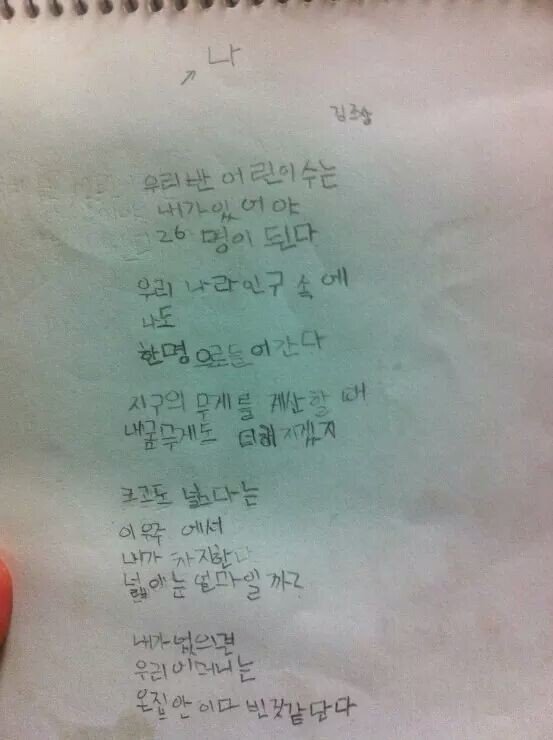 나
김조상
우리반 어린이 수는
내가 있어야
26 명이 된다
우리 나라 인구 속에
나도
한명으로 들어간다
지구의 무게를 계산할 때
내 몸무게도 더해지겠지
크고도 넓다는
이 우주에서
내가 차지한다
넓이는 얼마일까?
내가 없으면
우리 어머니는
온 집안이 다 빈것같단다